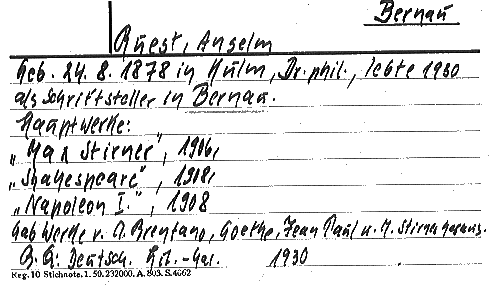 Bernau
Ruest, Anselm
Geb. 24. 8. 1878 in Kulm, Dr. phil., lebte 1930
als Schriftsteller in Bernau.
Hauptwerke:
„Max Stirner", 1906,
„Shakespeare", 1908,
„Napoleon I.", 1908
Gab Werke v. Brentano, Goethe, Jean Paul u. M. Stirner heraus.
Deutsch. Lit.- 1930
Reg. 10 Stichnote. 1. 50. 232000. A. 803. S. 4662